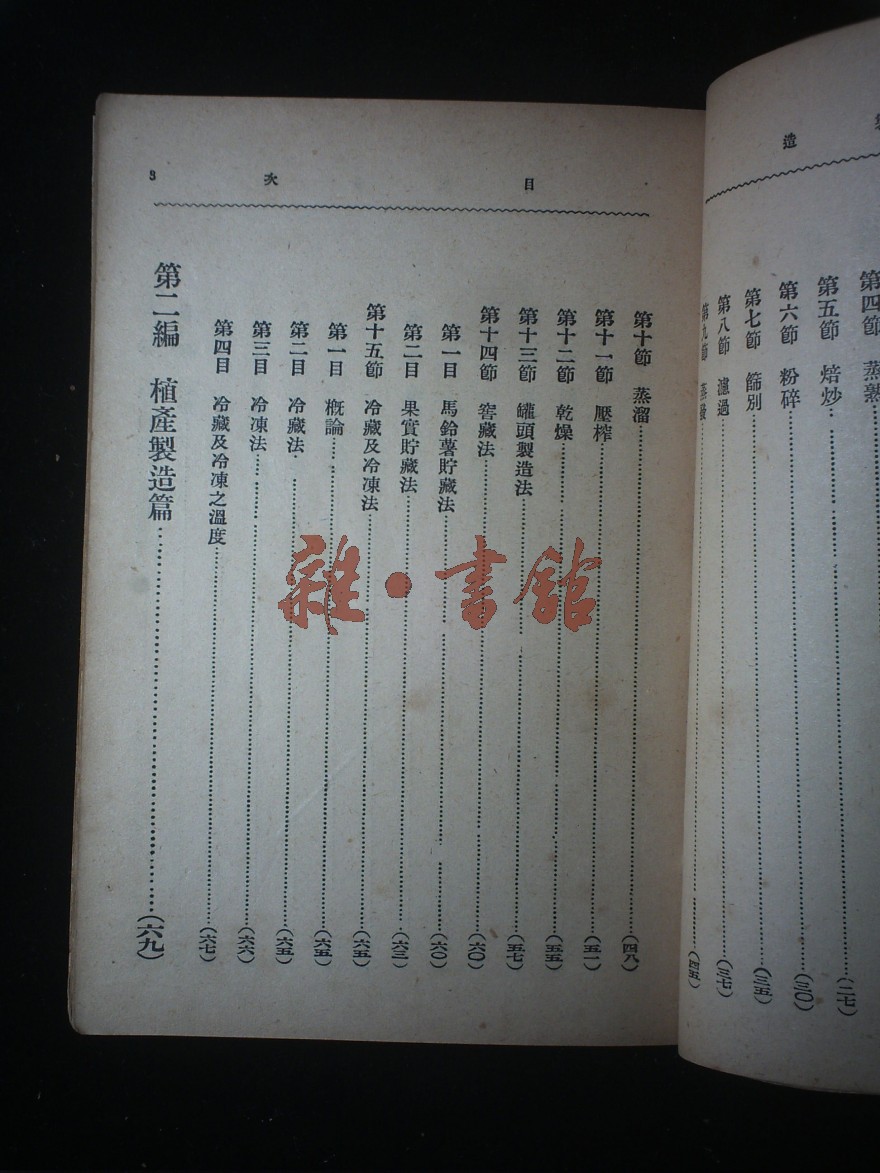 造
第四節 蒸熟
第五節 焙炒……(二七)
第六節 粉碎……(三〇)
第七節 篩別……(三五)
第八節 濾過……(三七)
第九節 蒸發……(四五)
目次 3
第十節 蒸溜……(四八)
第十一節 壓榨……(五一)
第十二節 乾燥……(五五)
第十三節 罐頭製造法……(五七)
第十四節 窖藏法……(六〇)
第一目 馬鈴薯貯藏法……(六〇)
第二目 果實貯藏法……(六三)
第十五節 冷藏及冷凍法……(六五)
第一目 槪論……(六五)
第二目 冷藏法……(六五)
第三目 冷凍法……(六六)
第四目 冷藏及冷凍之溫度……(六七)
第二編 植產製造篇……(六九)
雜·書館